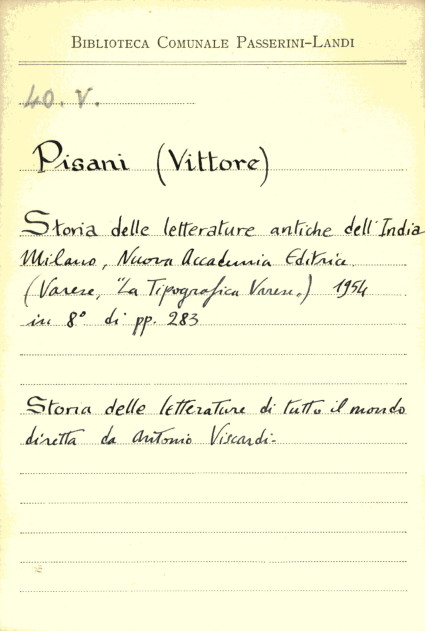 BIBLIOTECA COMUNALE PASSERINI-LANDI
40. V.
Pisani (Vittore)
Storia delle letterature antiche dell'India
Milano, Nuova Accademia Editrice
(Varese, "La Tipografica Varese.) 1954
in 8° di pp. 283
Storia delle letterature di tutto il mondo
diretta da Antonio Viscardi-